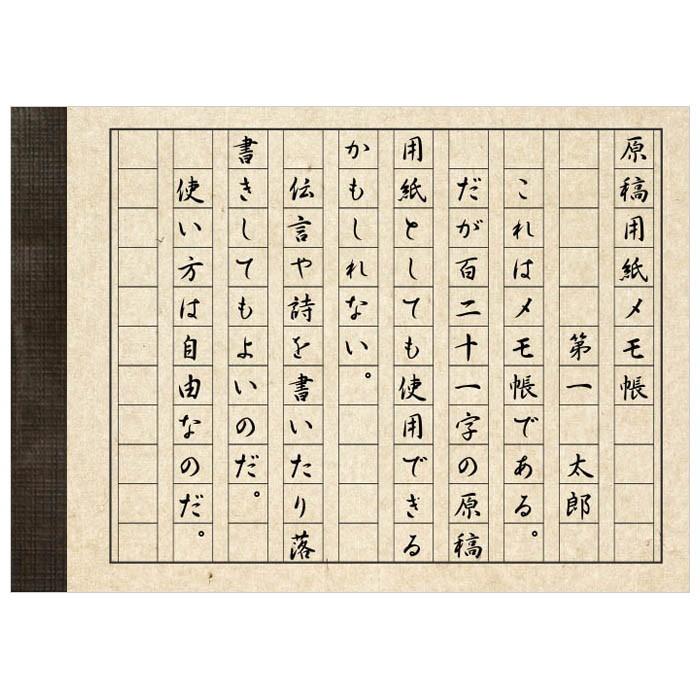 原稿用紙メモ帳
第一　太郎
これはメモ帳である。
だが百二十一字の原稿
用紙としても使用できる
かもしれない。
伝言や詩を書いたり落
書きしてもよいのだ。
使い方は自由なのだ。